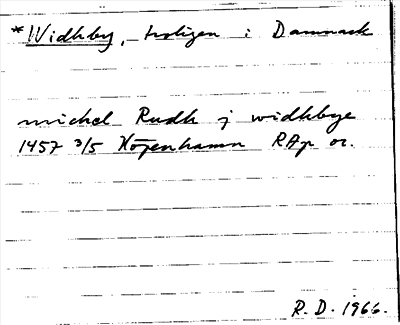 *Widhby, troligen i Danmark
michel Rudh j widhbye
1457 3/5 Köpenhamn RAp or.
R.D. 1966.